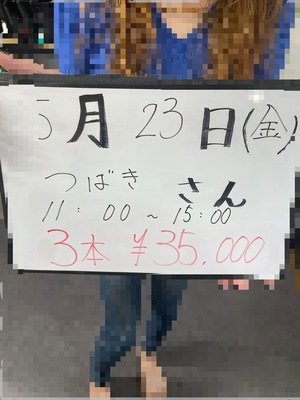 5月23日(金)
つばき さん
11:00~15:00
3本 ¥35.000